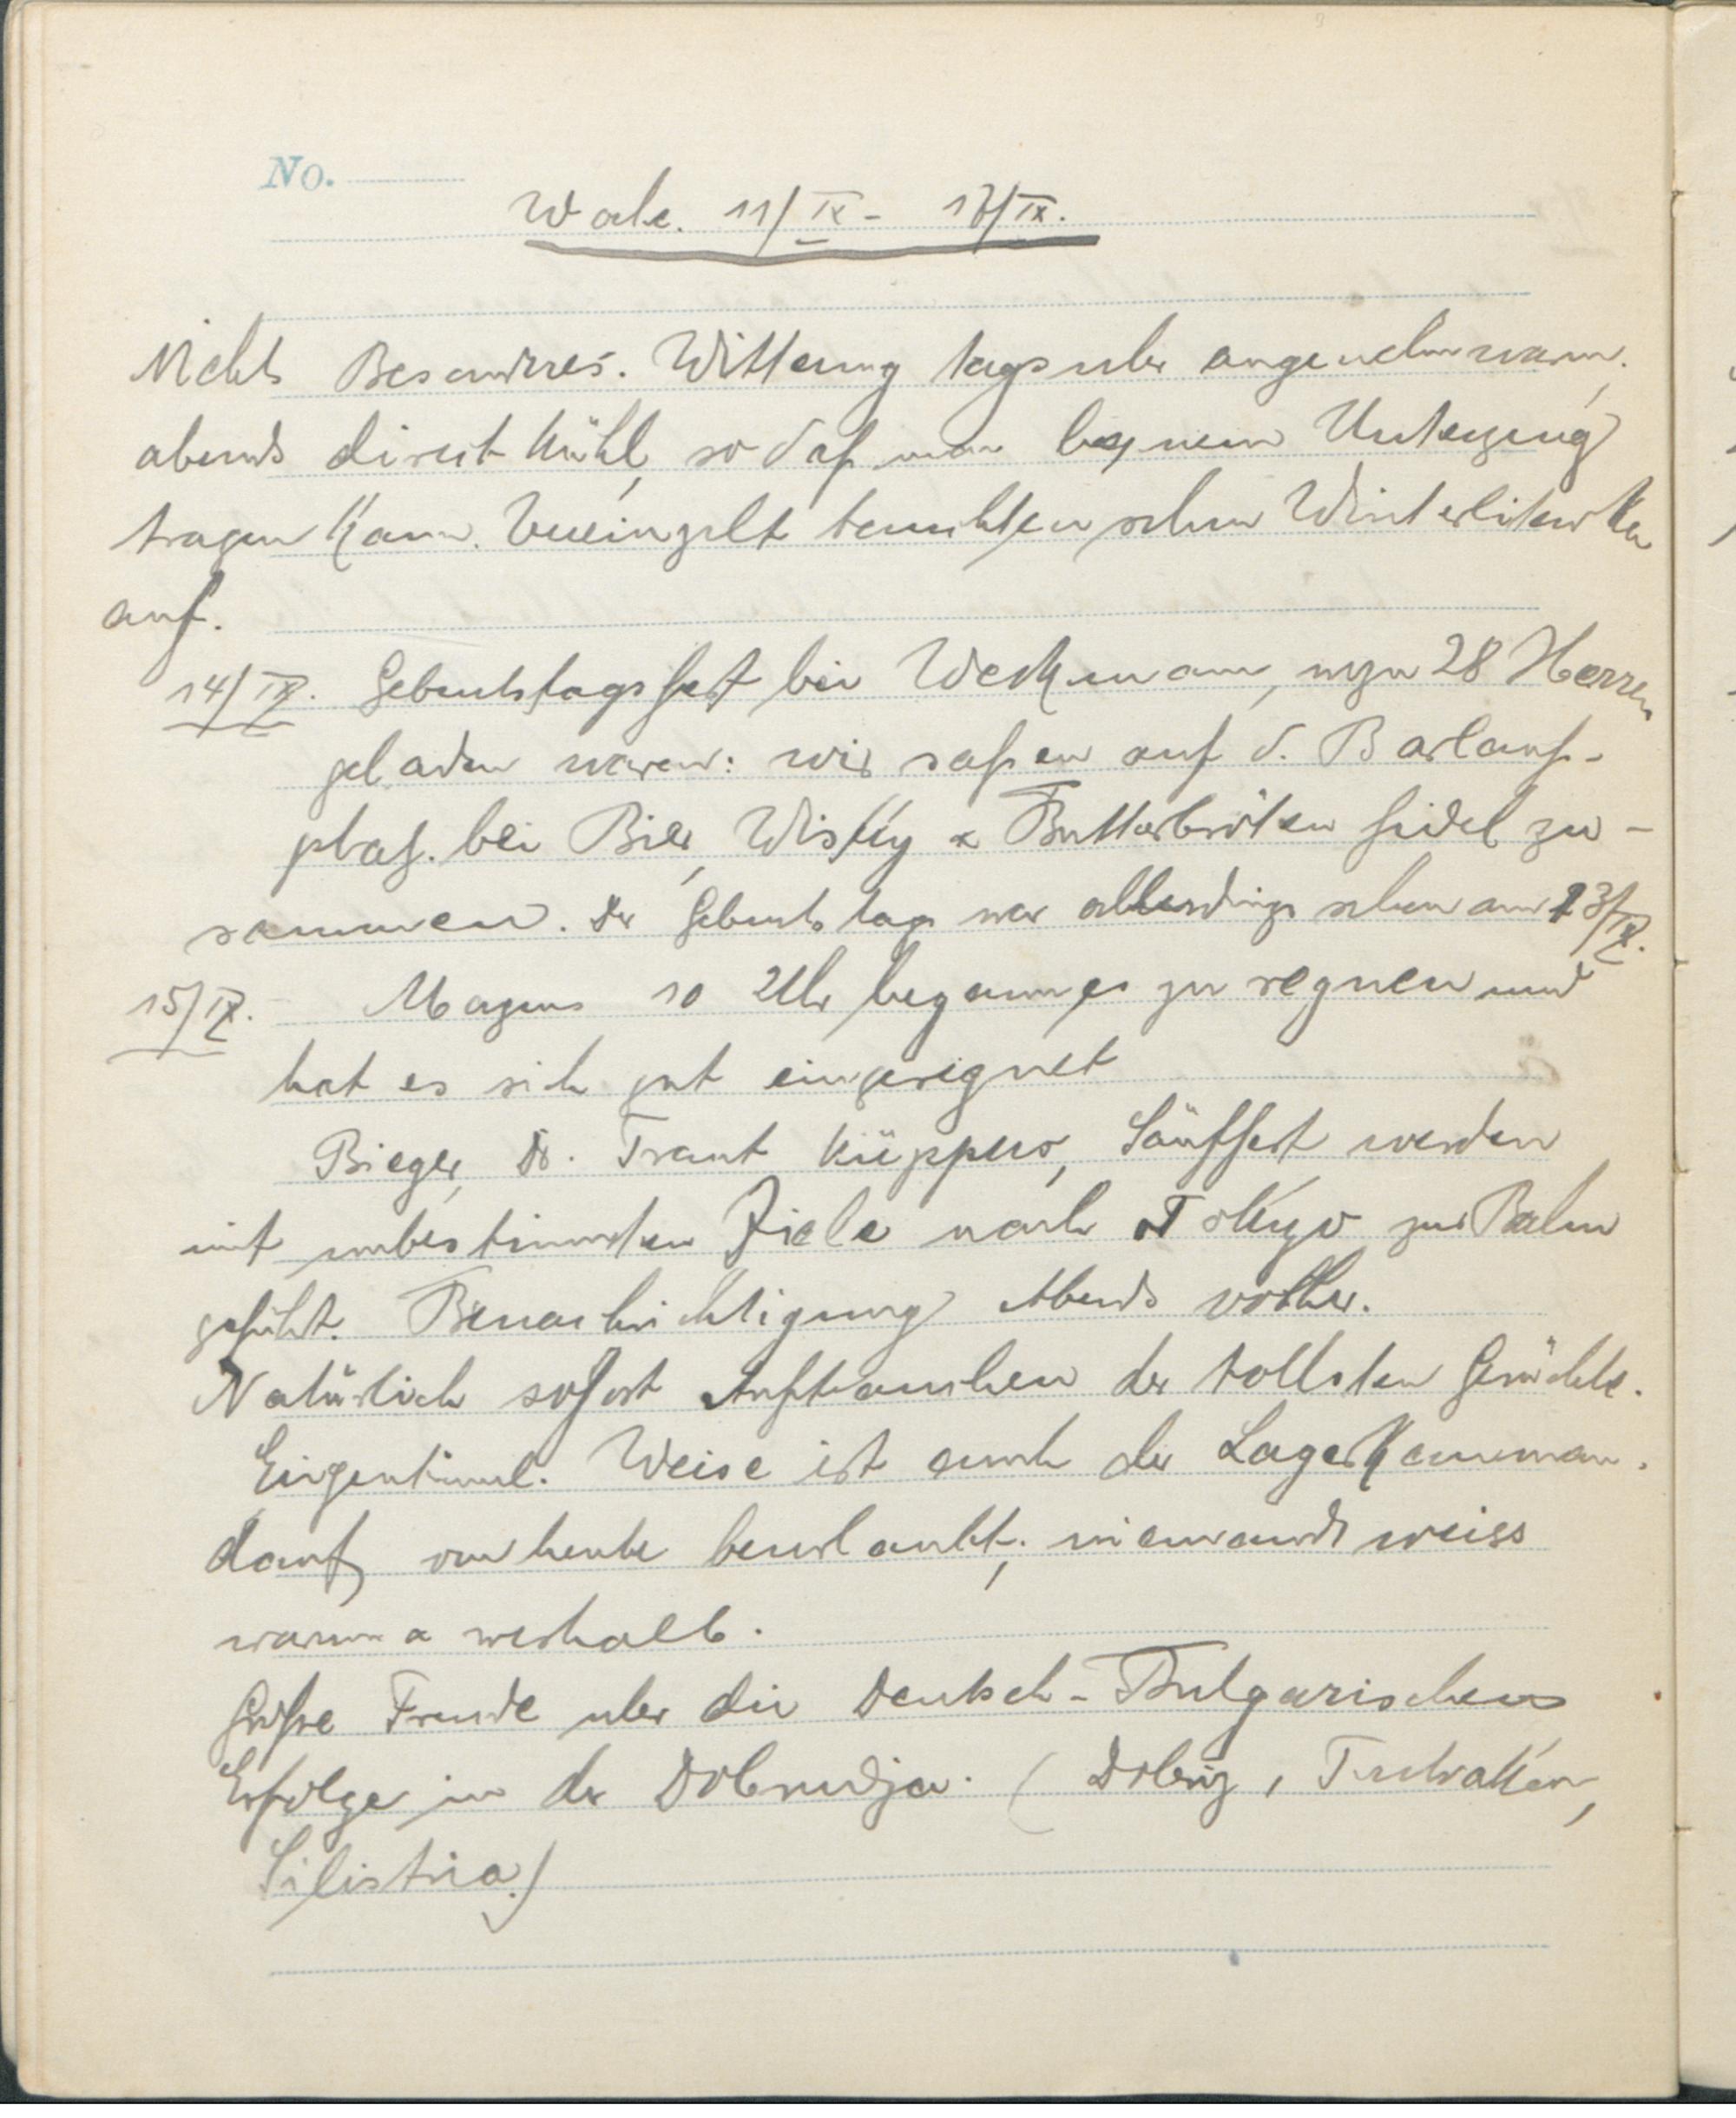 No.
Woche. 11/IX - 17/IX.
Nichts Besonderes. Witterung tagsuber angenehm warm,
abends direct kühl, so daß man bequem Unterzeug
tragen kann. Vereinzelt tauchten schon Winterlitewken
auf.
14/IX. Geburtstagsfest bei Weckmann, wozu 28 Herren
geladen waren: wir saßen auf d. Barlauf-
platz. bei Bier, Wisky & Butterbröten fidel zu-
sammen. Der Geburtstag war allerdings schon am 13/IX.
15/IX. Morgens 10 Uhr begann es zu regnen und
hat es sich gut eingeregnet
Bieger, Dr. Traut Küppers, Säuffert werden
mit unbestimmten Ziele nach Tokyo zur Bahn
geführt. Benachrichtigung Abends vorher.
Natürlich sofort Auftauchen der tollsten Gerüchte.
Eigentüml. Weise ist auch der Lagerkomman-
dant von heute beurlaubt; niemand weiss
warum & weshalb.
Große Freude uber die Deutsch-Bulgarischen
Erfolge in der Dobrudja. (Dobriz, Tutrakan,
Silistria)